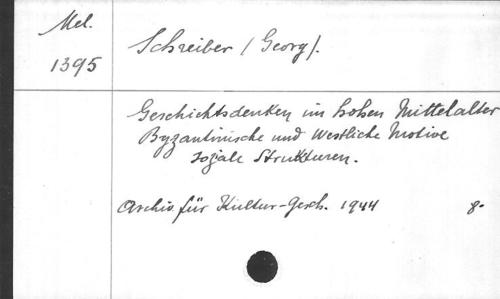 Mel.
1395
Schreiber (Georg).
Geschichtsdenken im hohen Mittelalter
Byzantinische und Westliche Motive
soziale Strukturen.
Archiv für Kultur-Gesch. 1944 8-